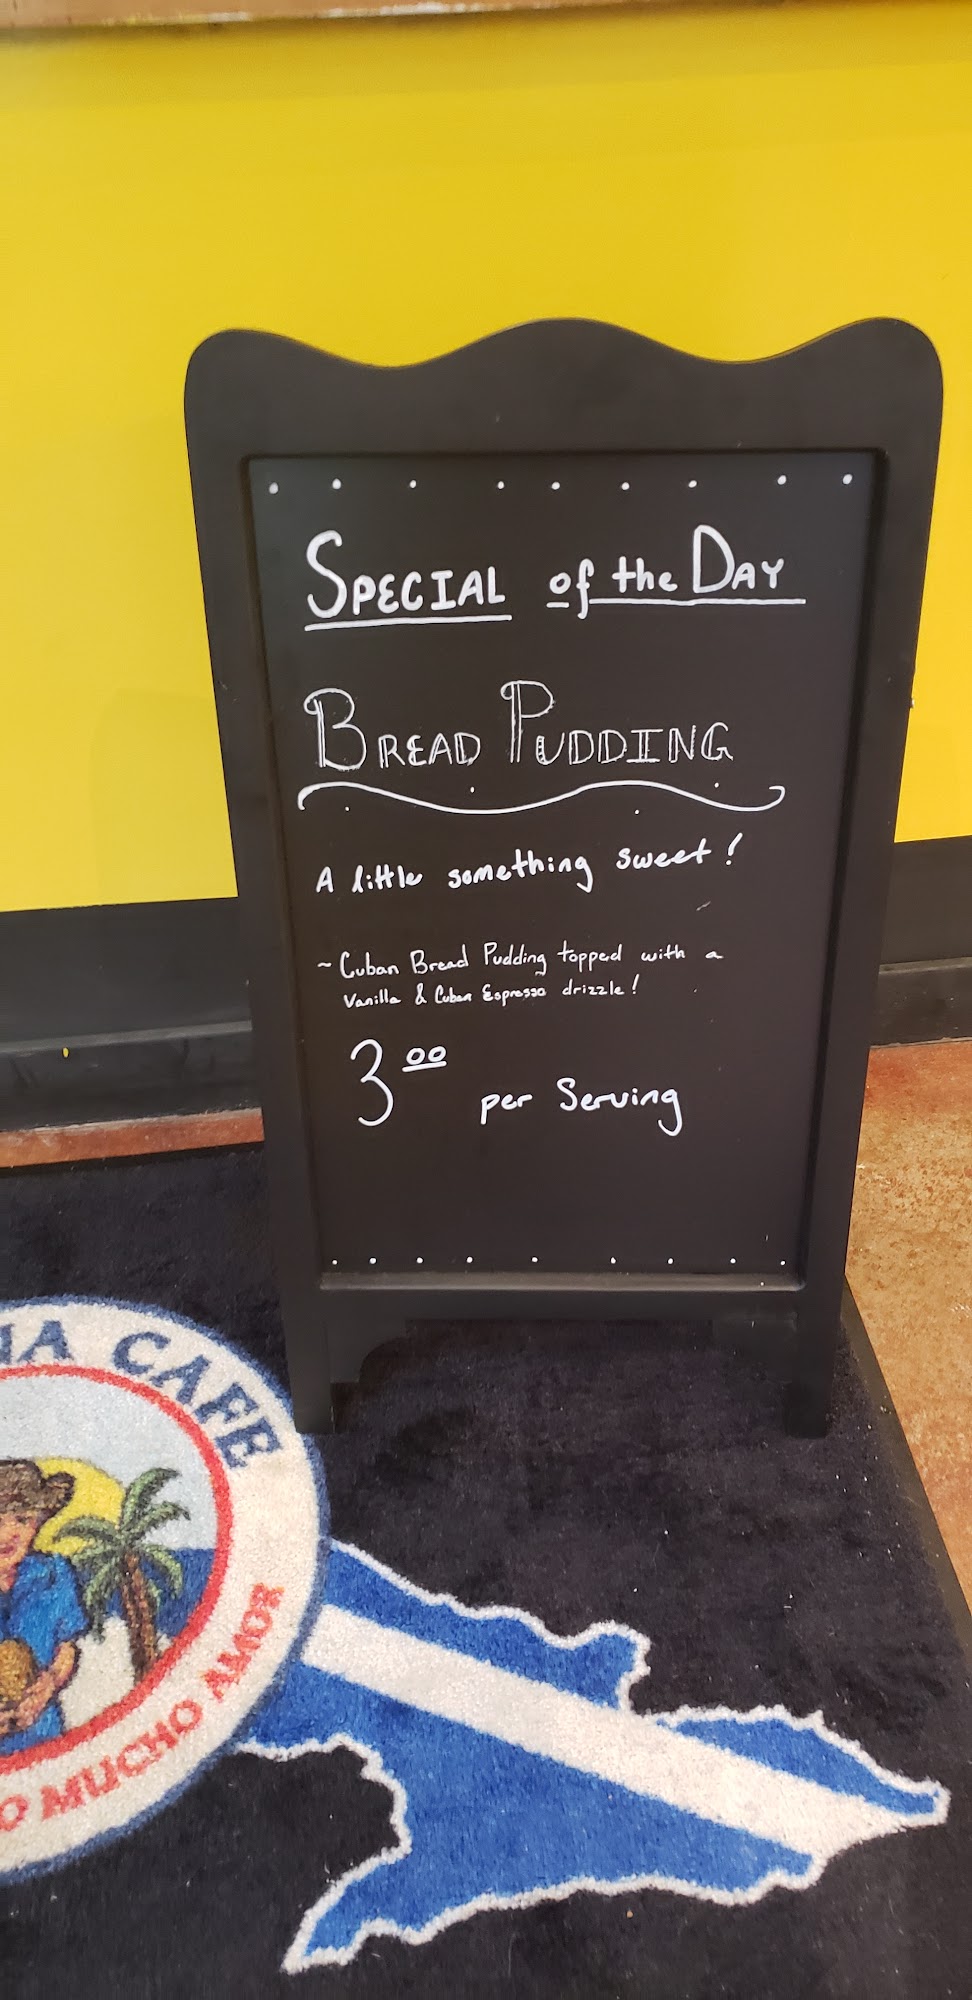 SPECIAL of the DAY
BREAD PUDDING
A little something sweet!
~ Cuban Bread Pudding topped with a
Vanilla & Cuban Espresso drizzle!
3 00 per Serving
CAFE
MUCHO AMOR